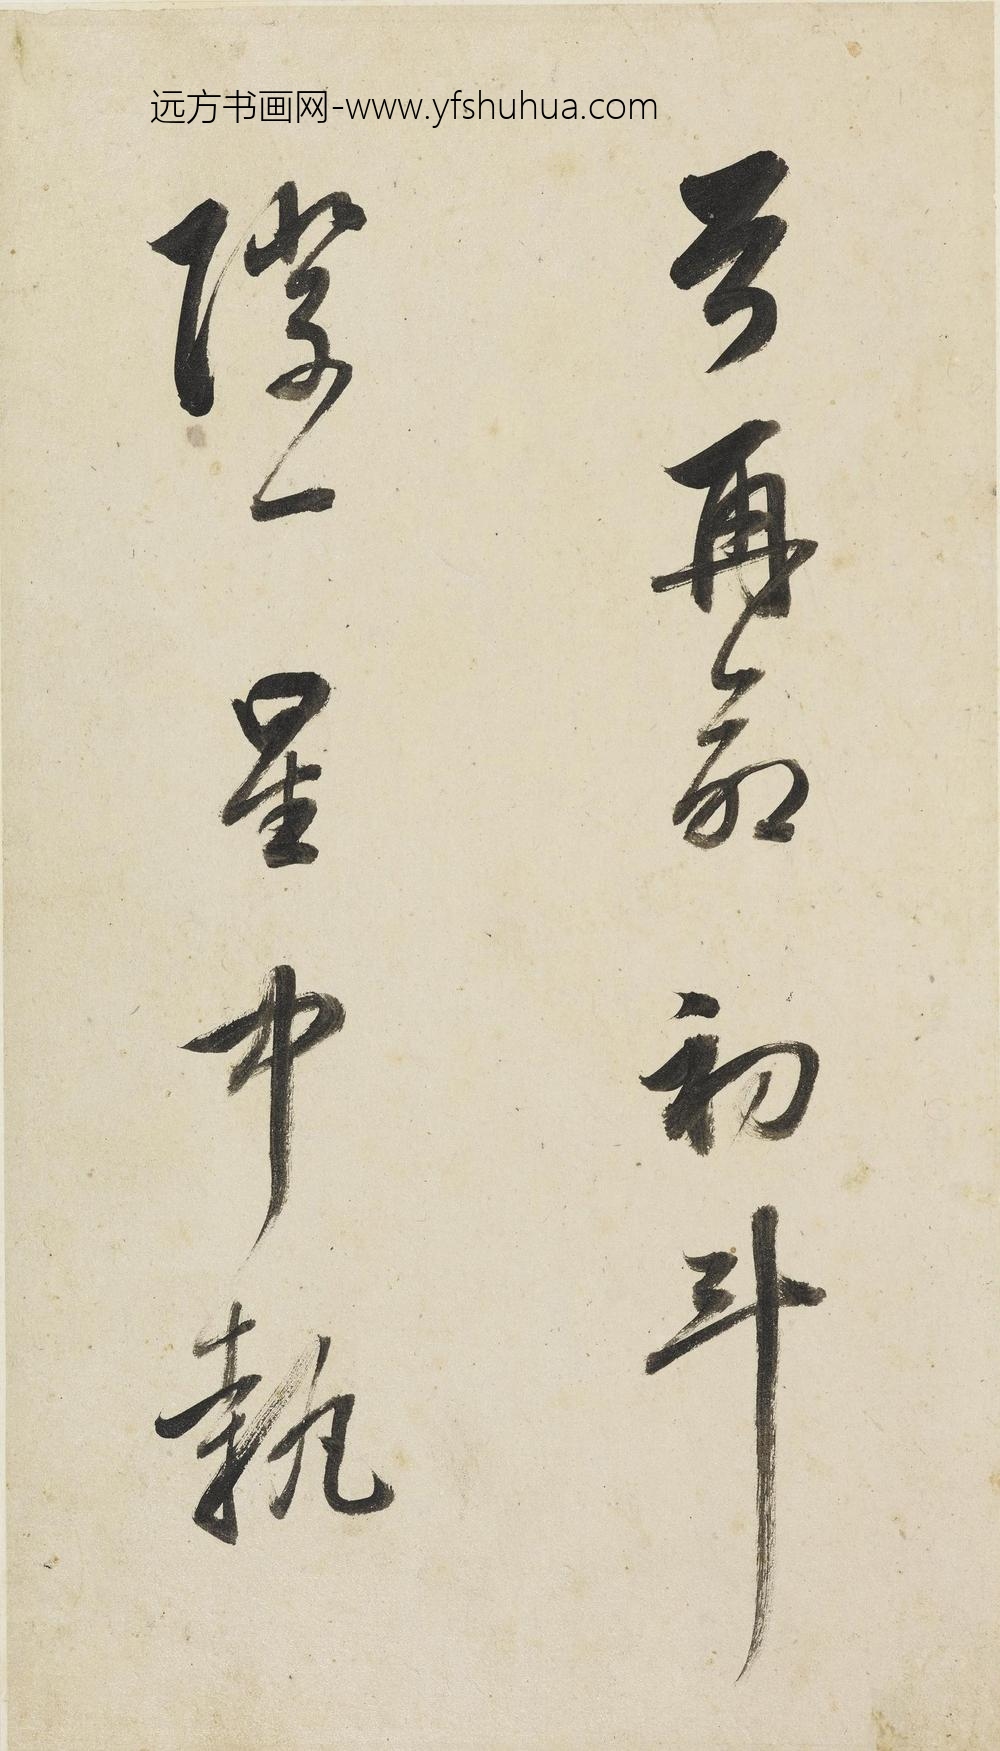 远方书画网-www.yfshuhua.com
再命初斗
隙一星中執